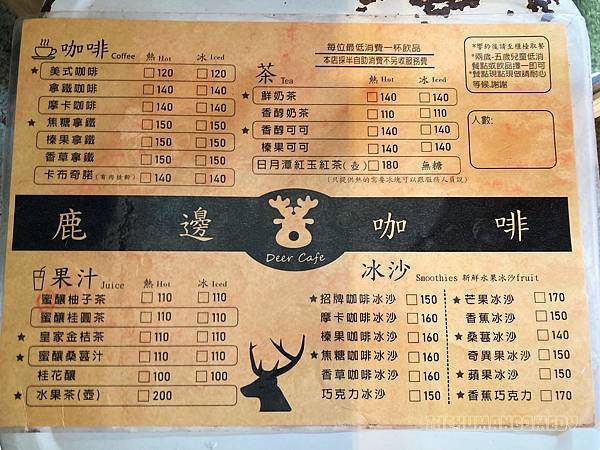 咖啡 Coffee 熱 Hot 冰 Iced
★ 美式咖啡 120 120
拿鐵咖啡 140 140
摩卡咖啡 140 140
★ 焦糖拿鐵 150 150
榛果拿鐵 150 150
香草拿鐵 150 150
卡布奇諾(有肉桂粉) 140 140
每位最低消費一杯飲品
本店採半自助消費不另收服務費
茶 Tea 熱 Hot 冰 Iced
★ 鮮奶茶 140 140
香醇奶茶 110 110
★ 香醇可可 140 140
榛果可可 140 140
日月潭紅玉紅茶(壺) 180 無糖
(只提供熱的需要冰塊可以跟服務人員說)
*響鈴後請至櫃檯取餐
*兩歲-五歲兒童低消
餐點或飲品擇一即可
*餐點現點現做請耐心
等候.謝謝
人數:
鹿邊咖啡
Deer Cafe
果汁 Juice 熱 Hot 冰 Iced
蜜釀柚子茶 110 110
蜜釀桂圓茶 110 110
★ 皇家金桔茶 110 110
★ 蜜釀桑葚汁 110 110
桂花釀 100 100
★ 水果茶(壺) 200
冰沙 Smoothies 新鮮水果冰沙fruit
★招牌咖啡冰沙 150
摩卡咖啡冰沙 160
榛果咖啡冰沙 160
★焦糖咖啡冰沙 160
香草咖啡冰沙 160
巧克力冰沙 150
★芒果冰沙 170
香蕉冰沙 150
★桑葚冰沙 140
奇異果冰沙 150
★蘋果冰沙 150
★香蕉巧克力 170
THEHUMANCOMEDY